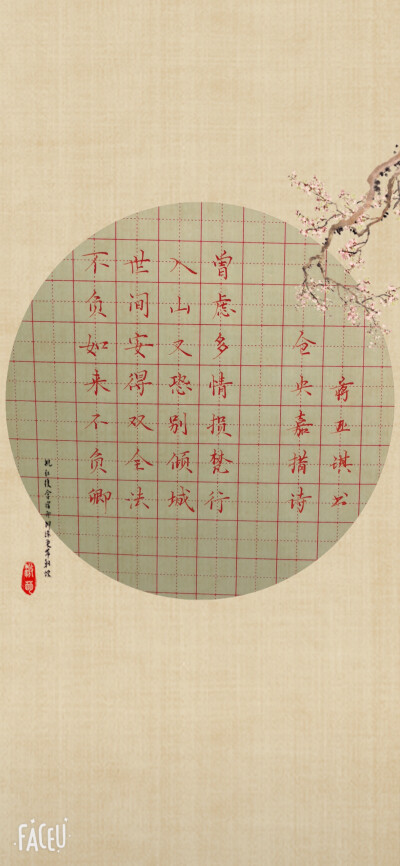 仓央嘉措诗
曾虑多情损梵行
入山又恐别倾城
世间安得双全法
不负如来不负卿
FACEU